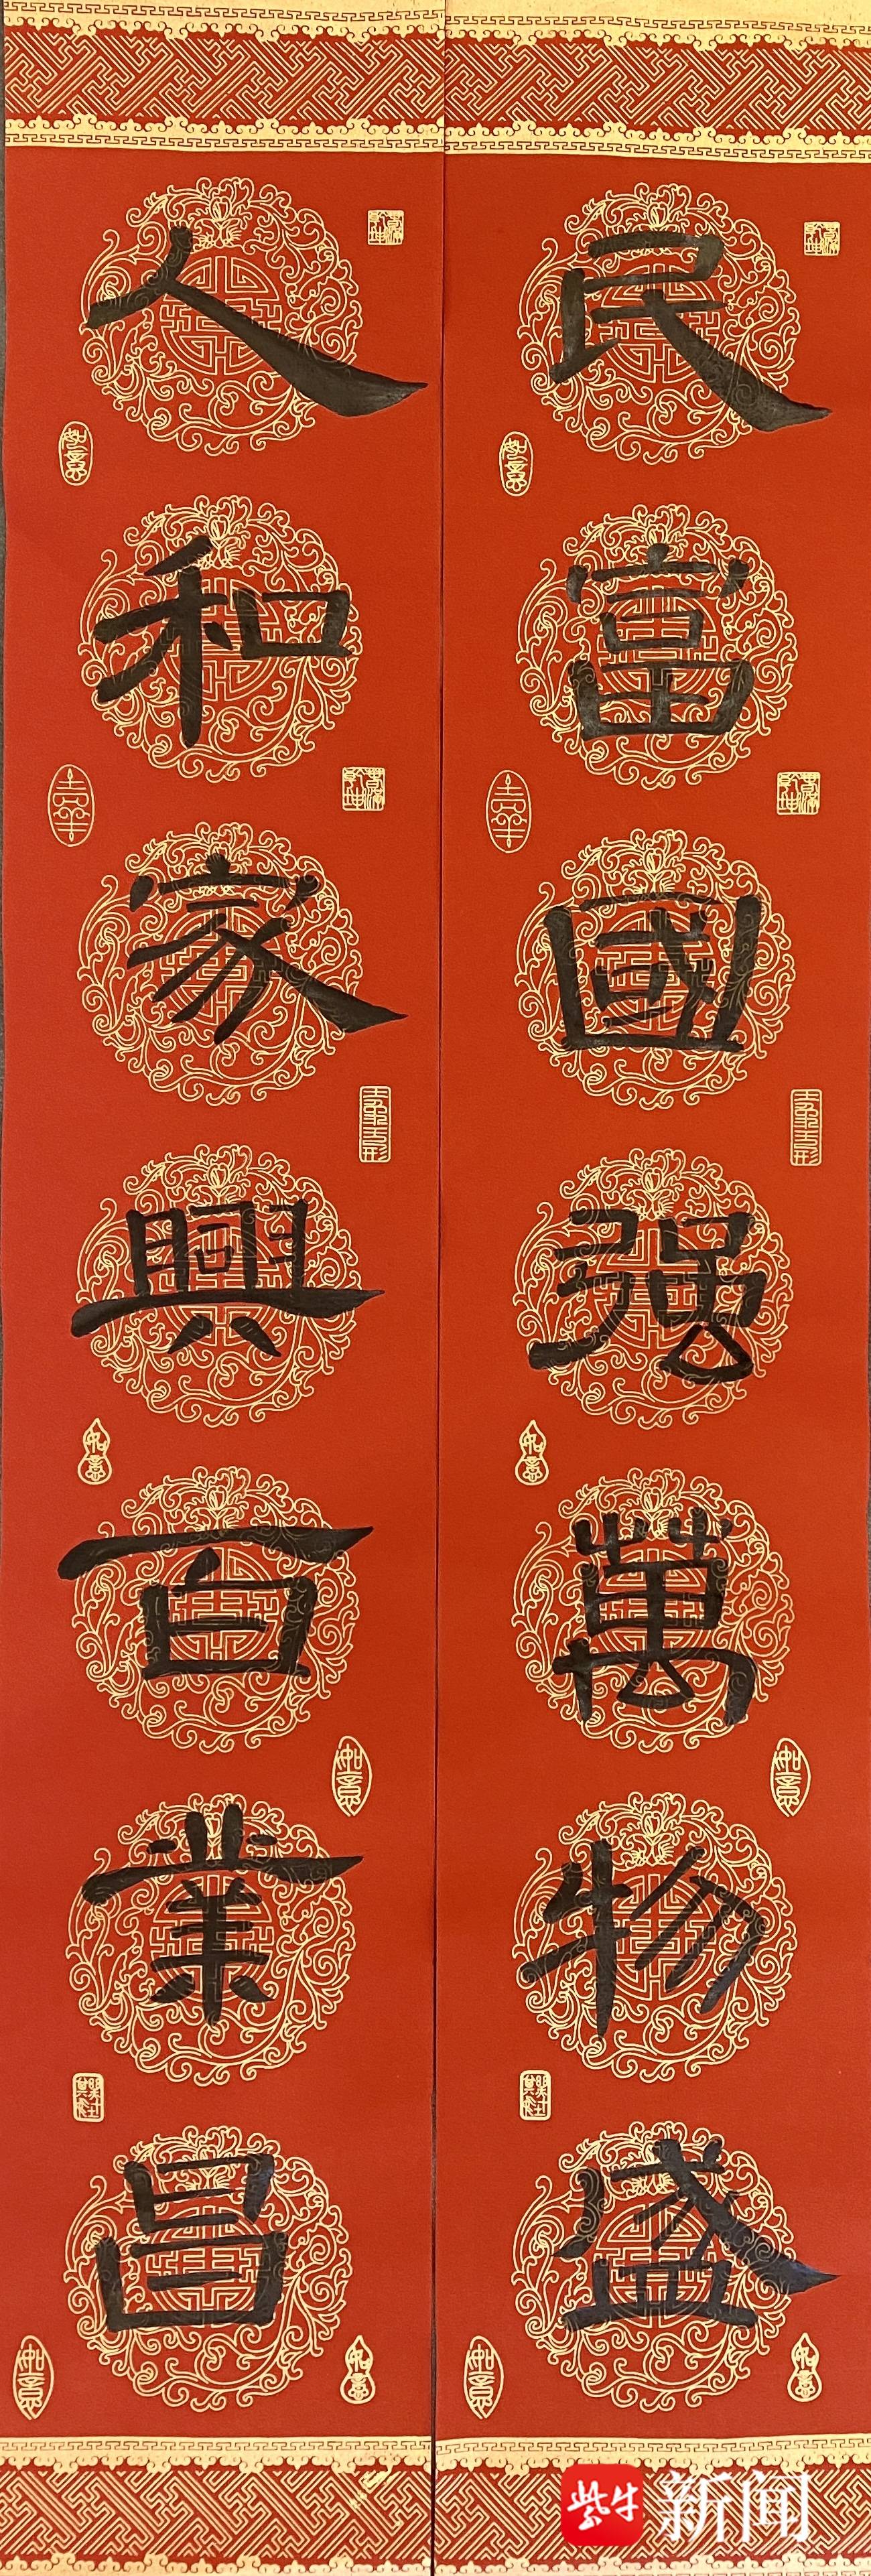 民富國強萬物盛
人和家興百業昌
紫牛新闻